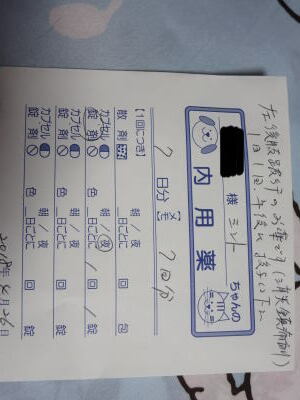 左後肢跛行のお薬です(消炎鎮痛剤)
1日1回、午後に
様 ミント ちゃんの
内用薬
7日分 7回分
【1回につき】
散剤 朝/夜 日ごとに 回 包
カプセル 錠剤 色 朝/夜 日ごとに / 回 / 錠
カプセル 錠剤 色 朝/夜 日ごとに 回 錠
カプセル 錠剤 色 朝/夜 日ごとに 回 錠
2018年4月26日